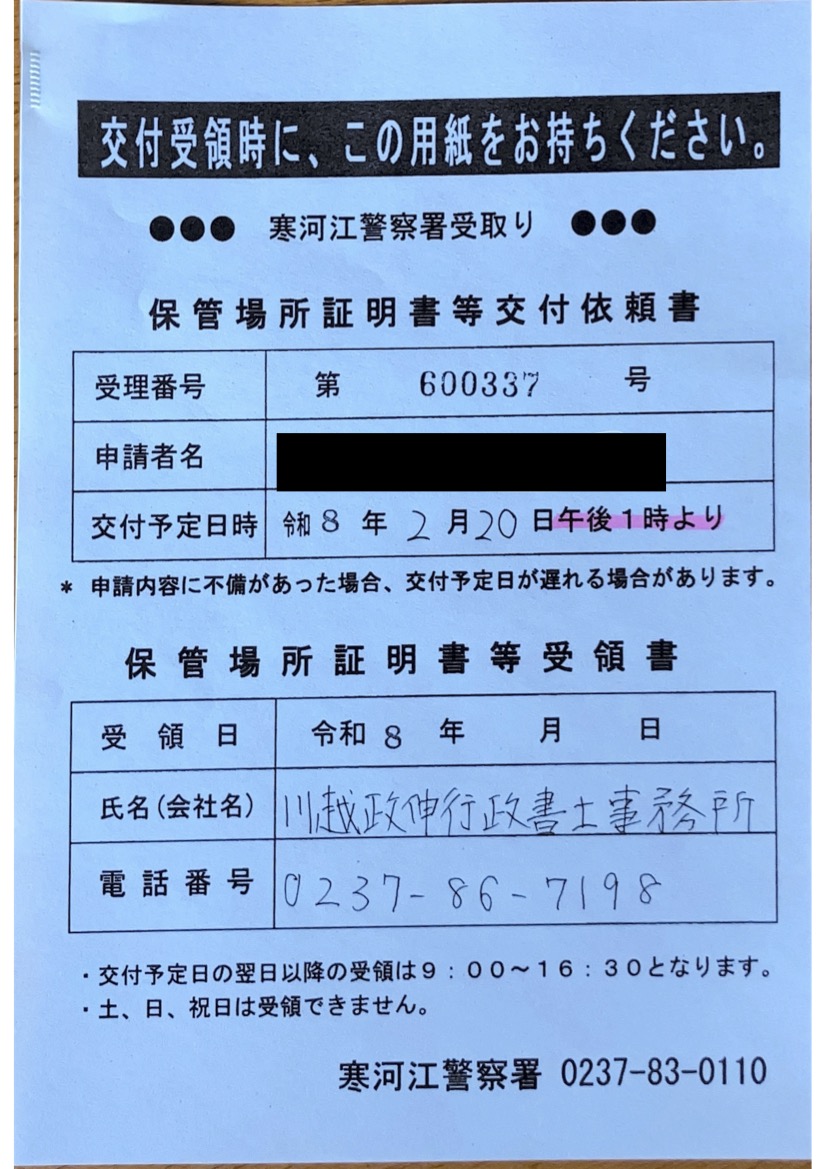 交付受領時に、この用紙をお持ちください。
●●● 寒河江警察署受取り ●●●
保管場所証明書等交付依頼書
受理番号 第 600337 号
申請者名
交付予定日時 令和 8 年 2 月 20 日午後1時より
* 申請内容に不備があった場合、交付予定日が遅れる場合があります。
保管場所証明書等受領書
受領日 令和 8 年 月 日
氏名(会社名) 川越政伸行政書士事務所
電話番号 0237-86-7198
・交付予定日の翌日以降の受領は9:00~16:30となります。
・土、日、祝日は受領できません。
寒河江警察署 0237-83-0110